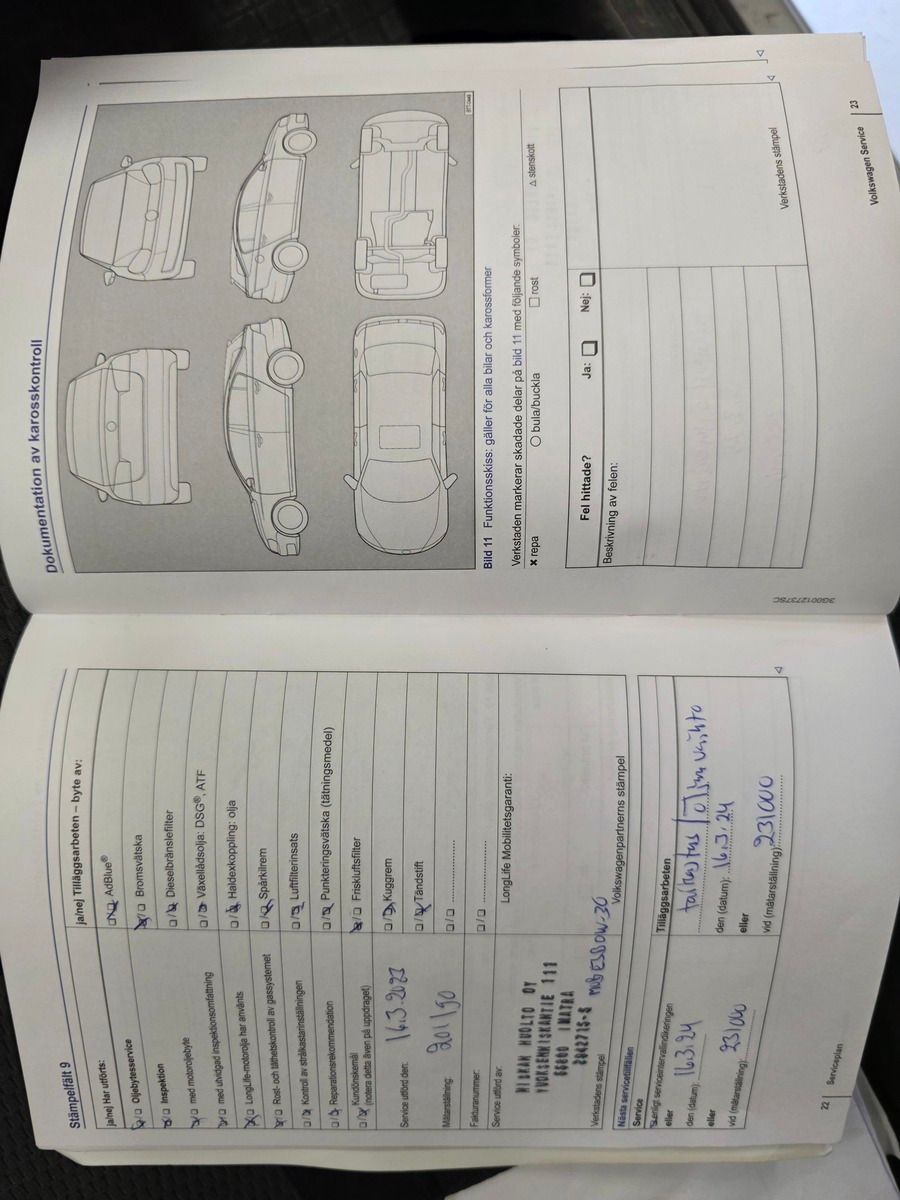 Stämpelfält 9
ja/nej Har utförts:
☒/☐ Oljebytesservice
☒/☐ Inspektion
☒/☐ med motoroljebyte
☒/☐ med utvidgad inspektionsomfattning
☒/☐ LongLife-motorolja har använts
☒/☐ Rost- och täthetskontroll av gassystemet
☐/☒ Kontroll av strålkastarinställningen
☐/☒ Reparationsrekommendation
☐/☒ Kundönskemål
(notera detta även på uppdraget)
Service utförd den: 16.3.2023
Mätarställning: 201190
Fakturanummer:
Service utförd av:
MIAKAN HUOLTO OY
VUOKSENNISKANTIE 111
55800 IMATRA
2842715-5
Verkstadens stämpel
ja/nej Tilläggsarbeten – byte av:
☐/☒ AdBlue®
☒/☐ Bromsvätska
☐/☒ Dieselbränslefilter
☐/☒ Växellådsolja: DSG®, ATF
☐/☒ Haldexkoppling: olja
☐/☒ Spårkilrem
☐/☒ Luftfilterinsats
☐/☒ Punkteringsvätska (tätningsmedel)
☒/☐ Friskluftsfilter
☐/☒ Kuggrem
☐/☒ Tändstift
☐/☐
☐/☐
LongLife Mobilitetsgaranti:
Volkswagenpartnerns stämpel
Nästa servicetillfällen
Service
enligt serviceintervallindikeringen
eller
den (datum): 16.3.24
eller
vid (mätarställning): 231000
Tilläggsarbeten
den (datum): 16.3.24
eller
vid (mätarställning): 231000
22 | Serviceplan
Dokumentation av karosskontroll
Bild 11 Funktionsskiss: gäller för alla bilar och karossformer
Verkstaden markerar skadade delar på bild 11 med följande symboler:
✖ repa ○ bula/buckla □ rost △ stenskott
Fel hittade? Ja: ☐ Nej: ☐
Beskrivning av felen:
Verkstadens stämpel
3G0012737SC
Volkswagen Service | 23